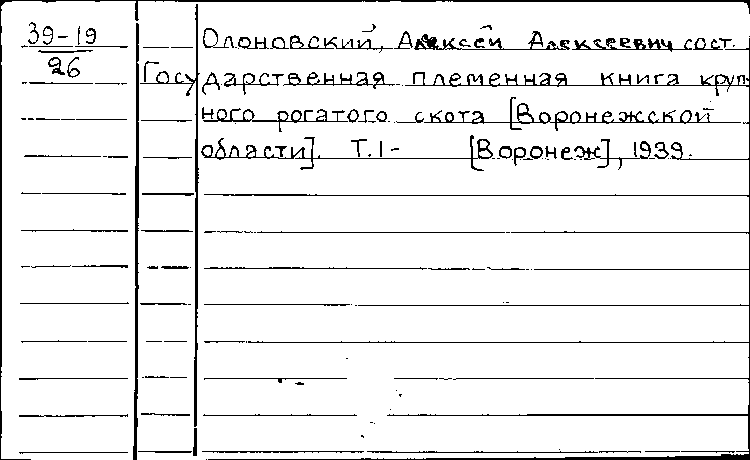 39-19
26
Олоновский, Алексей Алексеевич сост.
Государственная племенная книга круп-
ного рогатого скота [Воронежской
области]. Т.1- [Воронеж], 1939.